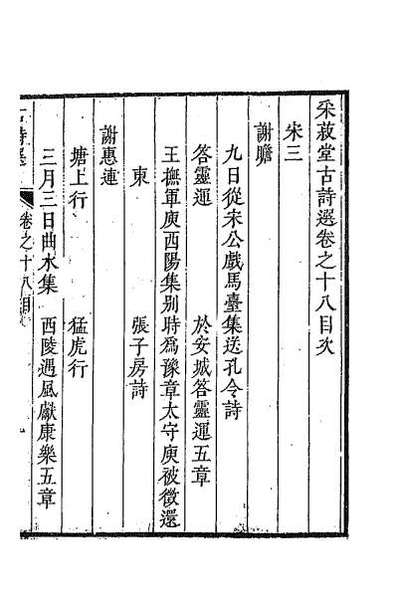 采菽堂古詩選卷之十八目次
宋三
謝瞻
九日從宋公戲馬臺集送孔令詩
答靈運　於安城答靈運五章
王撫軍庾西陽集别時爲豫章太守庾被徵還
東　張子房詩
謝惠連
塘上行　猛虎行
三月三日曲水集　西陵遇風獻康樂五章
古詩選　卷之十八目